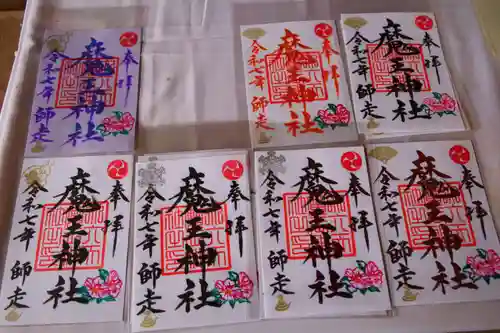 奉拝
魔王神社
令和七年 師走
奉拝
魔王神社
令和七年 師走
奉拝
魔王神社
令和七年 師走
奉拝
魔王神社
令和七年 師走
奉拝
魔王神社
令和七年 師走
奉拝
魔王神社
令和七年 師走
奉拝
魔王神社
令和七年 師走